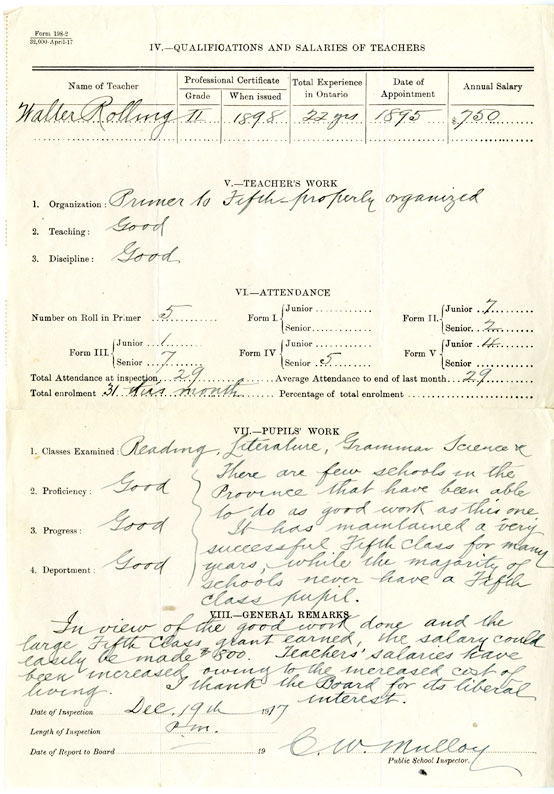 Form 198-2
32,000-April-17
IV.—QUALIFICATIONS AND SALARIES OF TEACHERS
Name of Teacher
Professional Certificate
Grade
When issued
Total Experience in Ontario
Date of Appointment
Annual Salary
Walter Rolling II 1898 22 yrs 1895 $750
V.—TEACHER'S WORK
1. Organization: Primer to Fifth—properly organized
2. Teaching: Good
3. Discipline: Good
VI.—ATTENDANCE
Number on Roll in Primer 5
Form I. Junior
Senior
Form II. Junior 7
Senior 2
Form III. Junior 1
Senior 7
Form IV Junior
Senior 5
Form V Junior 4
Senior
Total Attendance at inspection 29 Average Attendance to end of last month 29
Total enrolment 31 this month Percentage of total enrolment
VII.—PUPILS' WORK
1. Classes Examined: Reading, Literature, Grammar Science &
2. Proficiency: Good
3. Progress: Good
4. Deportment: Good
There are few schools in the
Province that have been able
to do as good work as this one
It has maintained a very
successful Fifth Class for many
years, while the majority of
schools never have a Fifth
class pupil.
VIII.—GENERAL REMARKS
In view of the good work done and the
large Fifth Class grant earned, the salary could
easily be made $800. Teachers' salaries have
been increased owing to the increased cost of
living. I thank the Board for its liberal
interest.
Date of Inspection Dec. 19th 1917
Length of Inspection P.m.
Date of Report to Board 19
C. W. Mulloy
Public School Inspector.